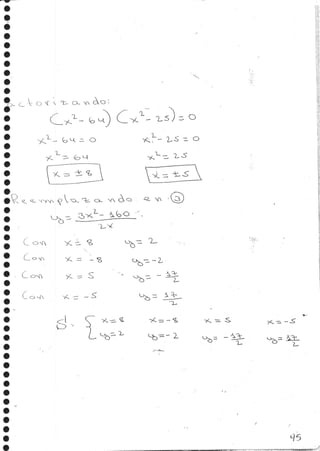 Factorizando:
(x²- 64) (x²- 25) = 0
x²- 64 = 0    x²- 25 = 0
x² = 64    x² = 25
x = ± 8    x = ± 5
Reemplazando en ③
y = 3x²- 160 / 2x
Con x = 8    y = 2
Con x = -8    y = -2
Con x = 5    y = - 17/2
Con x = -5    y = 17/2
S. { x = 8    x = -8    x = 5    x = -5
y = 2    y = -2    y = - 17/2    y = 17/2
45